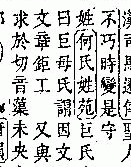 司馬遷傳
不巧時變是守
姓 何氏姓苑 巨氏
曰巨母氏 謂因
文章鉅工 又與
求於切音蕖未央